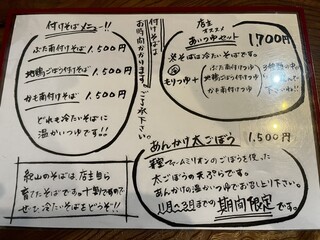 付けそばメニュー!!
ぶた南付けそば 1,500円
地鶏ごぼう付けそば 1,500円
かも南付けそば 1,500円
どれも冷たいそばに
温かいつゆです!!
付けそばは
お時間かかります!
ご了承下さい。
店主
オススメ
あいつゆセット 1,700円
※そばは冷たいそばです。
モリつゆ+
ぶた南付けつゆ
地鶏ごぼう付けつゆ
かも南付けつゆ
3種類の中から
ください!!
あんかけ太ごぼう 1,500円
ファームミリオンのごぼうを使った
太ごぼうの天ぷらです。
あんかけの温かいつゆでお召し上り下さい。
11月〜3月までの期間限定です。
松山のそばは、店主自ら
育てたそばです。十割ですので
ぜひ冷たいそばをどうぞ!!